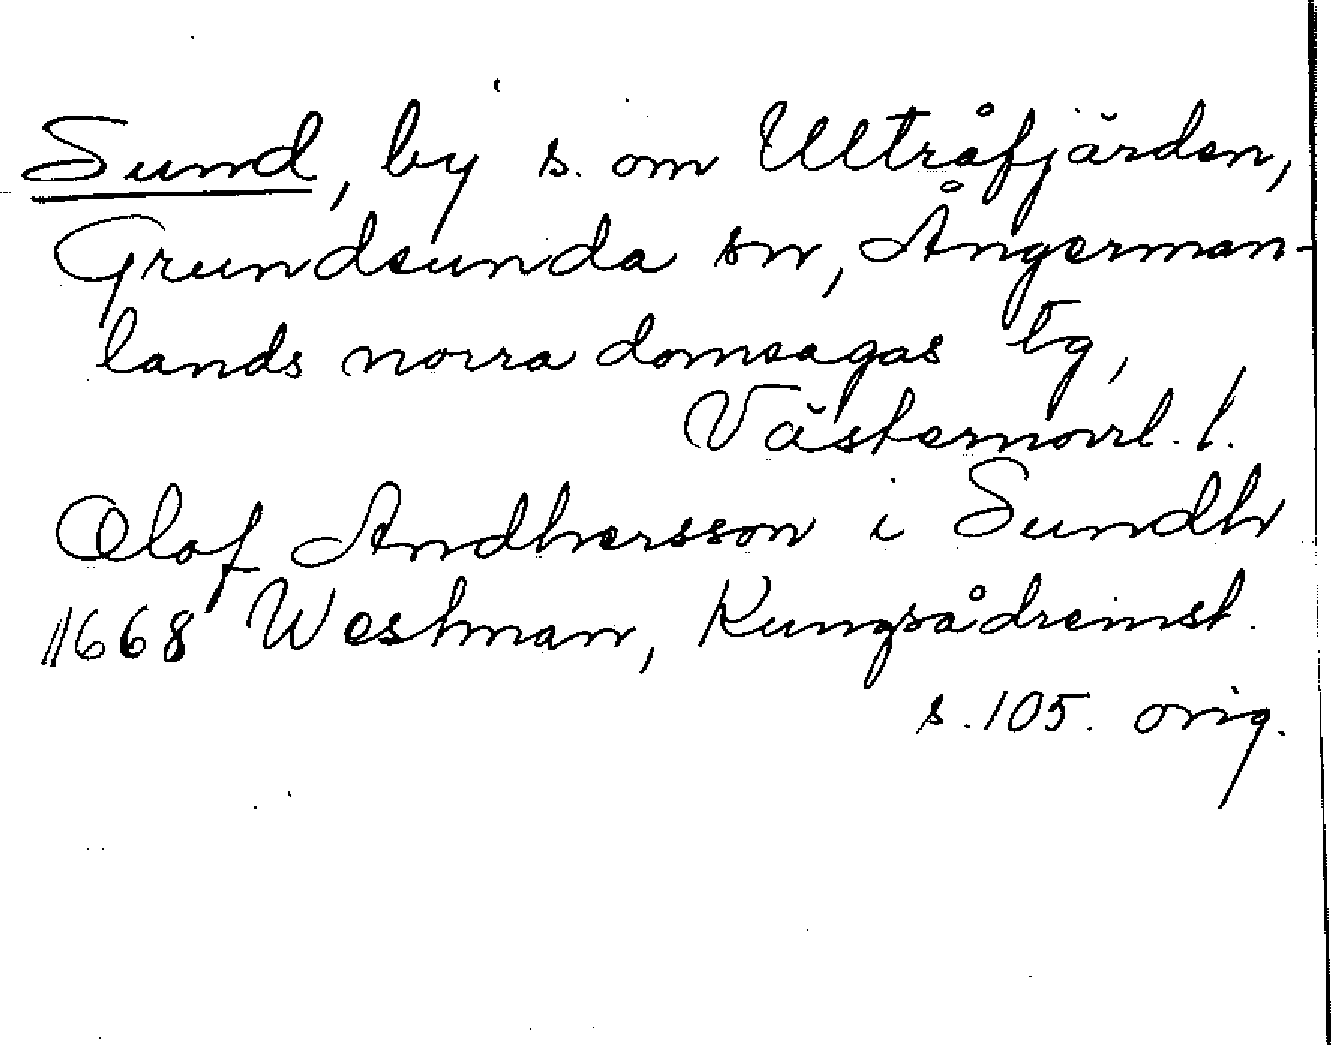 Sund, by s. om Ulltråfjärden,
Grundsunda sn, Ångerman-
lands norra domsagas tg,
Västernorrl. l.
Olof Andhersson i Sundh
1668 Westman, Kungsådreinst.
s. 105. orig.